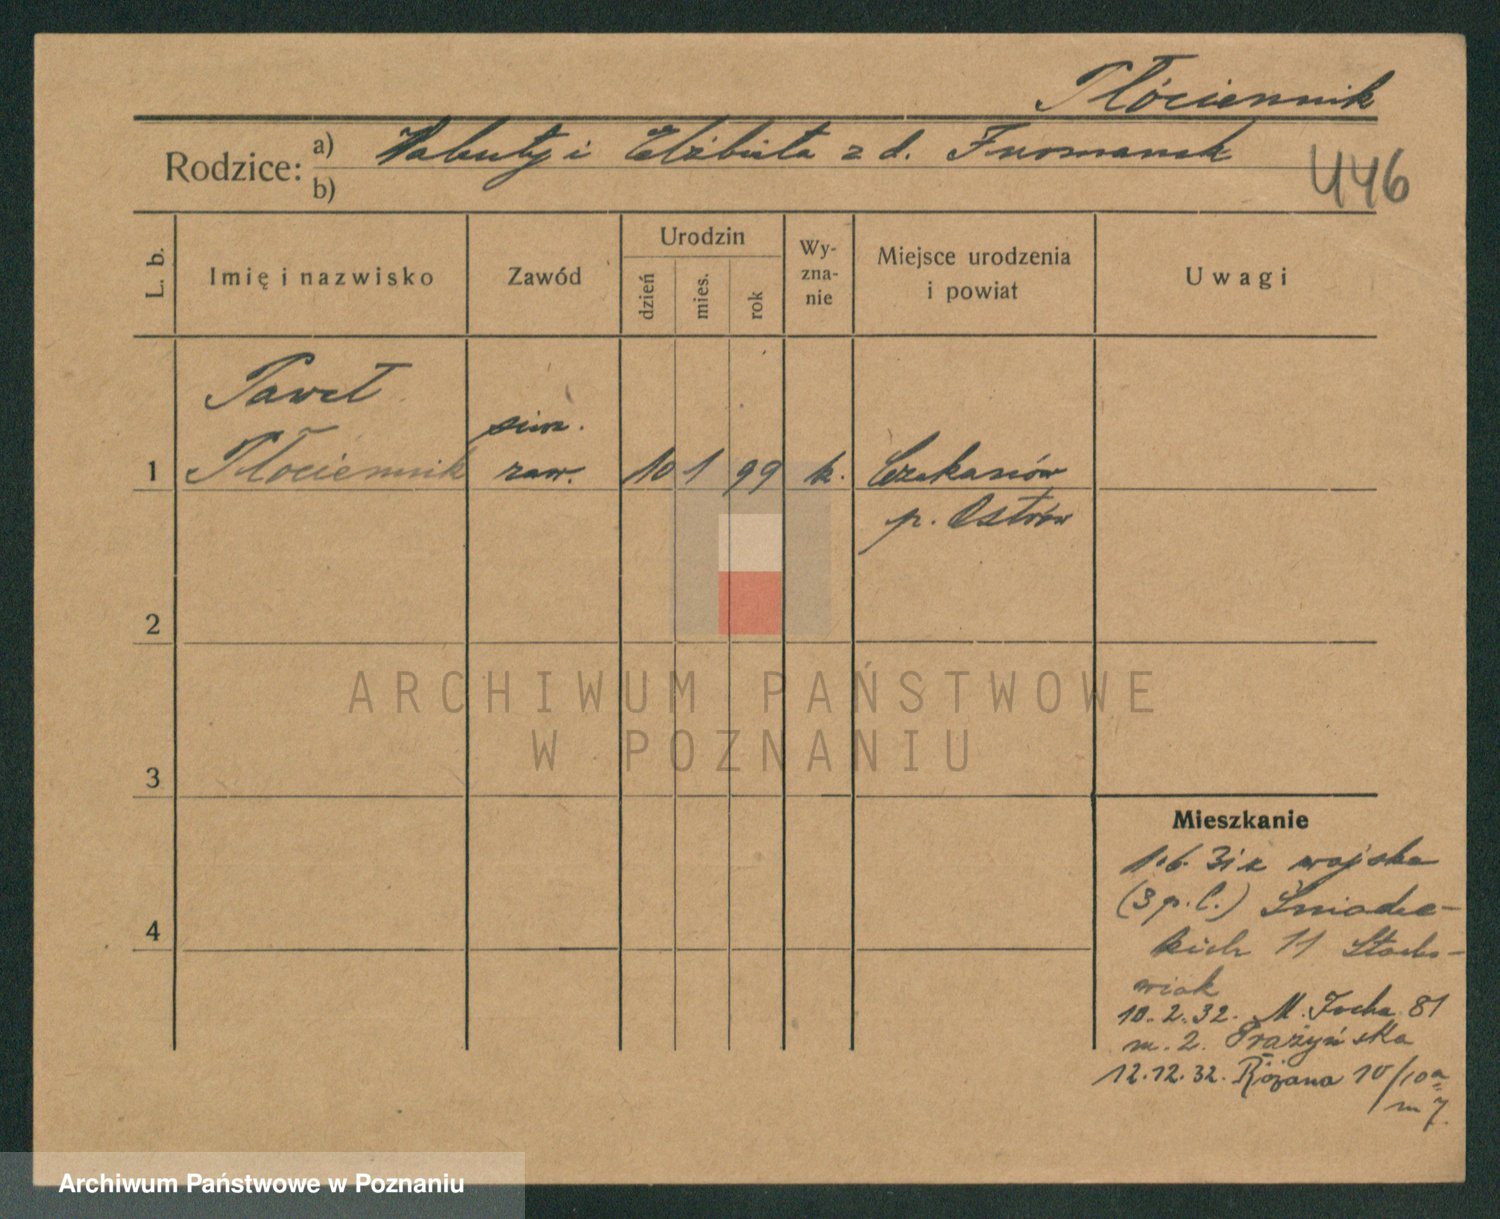 Płóciennik
Rodzice: a) Walenty i Elżbieta z d. Furmanek
b)
446
L. b.
Imię i nazwisko
Zawód
Urodzin
dzień
mies.
rok
Wy-
zna-
nie
Miejsce urodzenia
i powiat
Uwagi
Paweł
sierż.
1 Płóciennik zaw. 10 1 99 k. Czekanów
p. Ostrów
2
ARCHIWUM PAŃSTWOWE
W POZNANIU
3
Mieszkanie
1.6. 31 z wojska
(3 p. l.) Śniadec-
4
kich 11 Stacho-
wiak
10.2.32. M. Focha 81
m. 2. Prażyńska
12.12.32. Różana 10/10a
m 7.
Archiwum Państwowe w Poznaniu